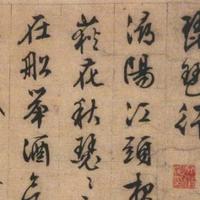 琵琶行
潯陽江頭夜
荻花秋瑟〻
在船舉酒